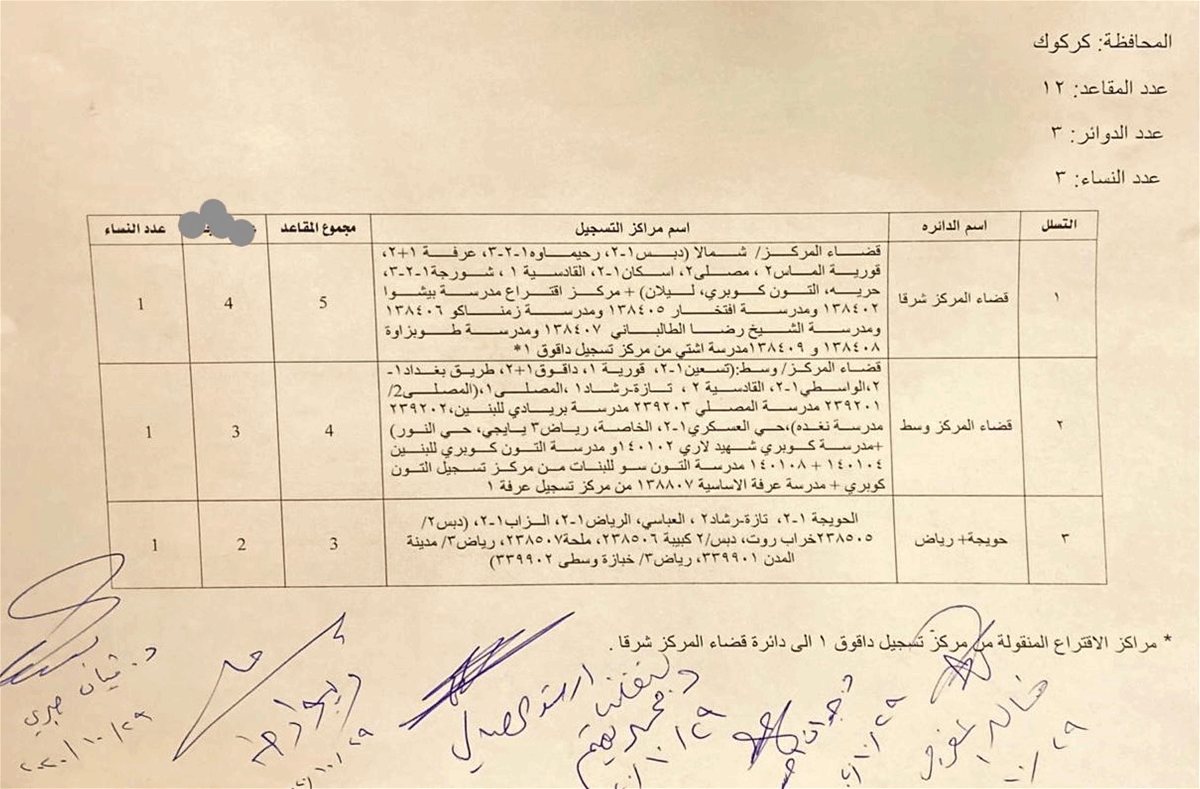 المحافظة: كركوك
عدد المقاعد: ١٢
عدد الدوائر: ٣
عدد النساء: ٣
التسلل اسم الدائره اسم مراكز التسجيل مجموع المقاعد عدد النساء
١ قضاء المركز شرقا 5 4 1
قضاء المركز/ شمالا (دبس١-٢، رحيماوه١-٢-٣، عرفة ١+٢،
قورية الماس٢ ، مصلى٢، اسكان١-٢، القادسية ١ ، شورجة١-٢-٣،
حريه، التون كوبري، ليلان) + مركز اقتراع مدرسة بيشوا
١٣٨٤٠٢ ومدرسة افتخار ١٣٨٤٠٥ ومدرسة زمناكو ١٣٨٤٠٦
ومدرسة الشيخ رضا الطالباني ١٣٨٤٠٧ ومدرسة طوبزاوة
١٣٨٤٠٨ و ١٣٨٤٠٩مدرسة اشتي من مركز تسجيل داقوق ١*
٢ قضاء المركز وسط 4 3 1
قضاء المركز/ وسط:(تسعين١-٢، قورية ١، داقوق١+٢، طريق بغداد١-
٢،الواسطي١-٢، القادسية ٢ ، تازة-رشاد١ ،المصلى١،(المصلى2/
٢٣٩٢٠١ مدرسة المصلي ٢٣٩٢٠٣ مدرسة بريادي للبنين،٢٣٩٢٠٢
مدرسة نغده)،حي العسكري١-٢، الخاصة، رياض٣ يايجي، حي النور)
+مدرسة كوبري شهيد لاري ١٤٠١٠٢و مدرسة التون كوبري للبنين
١٤٠١٠٤ + ١٤٠١٠٨ مدرسة التون سو للبنات من مركز تسجيل التون
كوبري + مدرسة عرفة الاساسية ١٣٨٨٠٧ من مركز تسجيل عرفة ١
٣ حويجة+ رياض 3 2 1
الحويجة ١-٢، تازة-رشاد٢ ، العباسي، الرياض١-٢، الزاب١-٢، (دبس٢/
٢٣٨٥٠٥خراب روت، دبس/٢ كبيبة ٢٣٨٥٠٦، ملحة٢٣٨٥٠٧، رياض٣/ مدينة
المدن ٣٣٩٩٠١، رياض٣/ خبازة وسطى ٣٣٩٩٠٢)
* مراكز الاقتراع المنقولة من مركز تسجيل داقوق ١ الى دائرة قضاء المركز شرقا .
ارشد الصالحي
خالد المفرجي